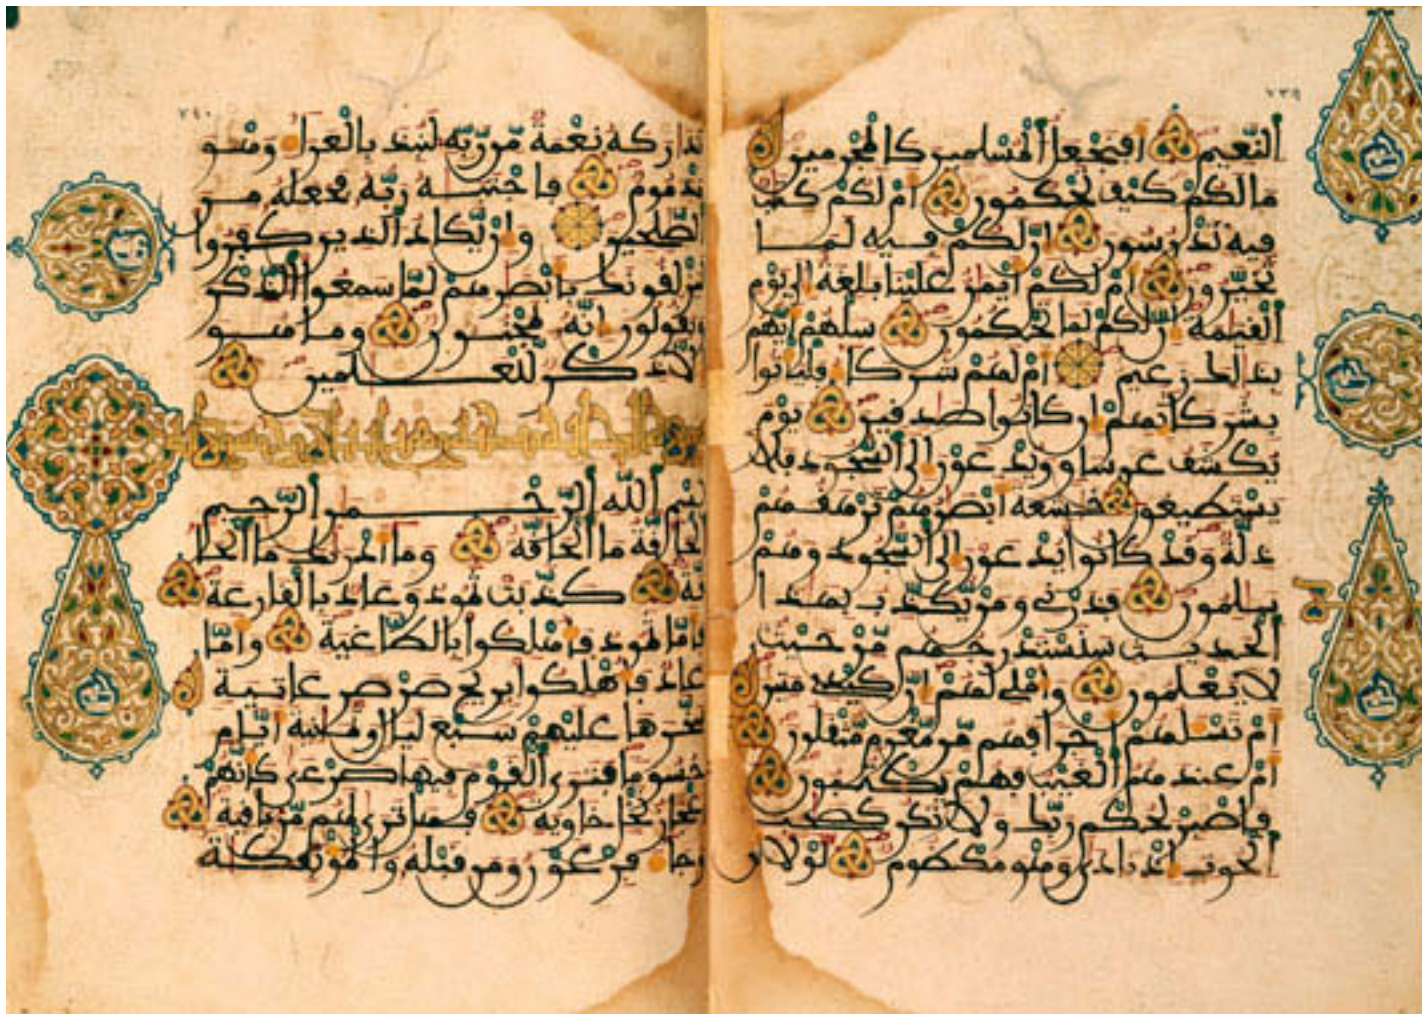 النَّعيم أفنجعل المسلمين كالمجرمين
ما لكم كيف تحكمون أم لكم كتب
فيه تدرسون إنّ لكم فيه لما
تخيّرون أم لكم أيمن علينا بلغة إلى يوم
القيمة إنّ لكم لما تحكمون سلهم أيّهم
بذلك زعيم أم لهم شركاء فلياتوا
بشركائهم إن كانوا صدقين يوم
يكشف عن ساق ويدعون إلى السّجود فلا
يستطيعون خشعة أبصرهم ترهقهم
ذلّة وقد كانوا يدعون إلى السّجود وهم
سلمون فذرني ومن يكذّب بهذا
الحديث سنستدرجهم مّن حيث
لا يعلمون وأملي لهم إنّ كيدي متين
أم تسلهم أجرا فهم مّن مّغرم مّثقلون
أم عندهم الغيب فهم يكتبون
فاصبر لحكم ربّك ولا تكن كصحب
الحوت إذ نادى وهو مكظوم لولا أن
تداركه نعمة مّن رّبّه لنبذ بالعراء وهو
مذموم فاجتبه ربّه فجعله من
الصّلحين وإن يّكاد الذين كفروا
ليزلقونك بأبصرهم لمّا سمعوا الذّكر
ويقولون إنّه لمجنون وما هو
إلا ذكر لّلعلمين
بسم الله الرّحمن الرّحيم
الحاقّة ما الحاقّة وما أدريك ما الحا
قّة كذّبت ثمود وعاد بالقارعة
فأمّا ثمود فأهلكوا بالطّاغية وأمّا
عاد فأهلكوا بريح صرصر عاتية
سخّرها عليهم سبع ليال وثمنية أيّام
حسوما فترى القوم فيها صرعى كأنّهم
أعجاز نخل خاوية فهل ترى لهم مّن باقية
وجاء فرعون ومن قبله والموتفكت